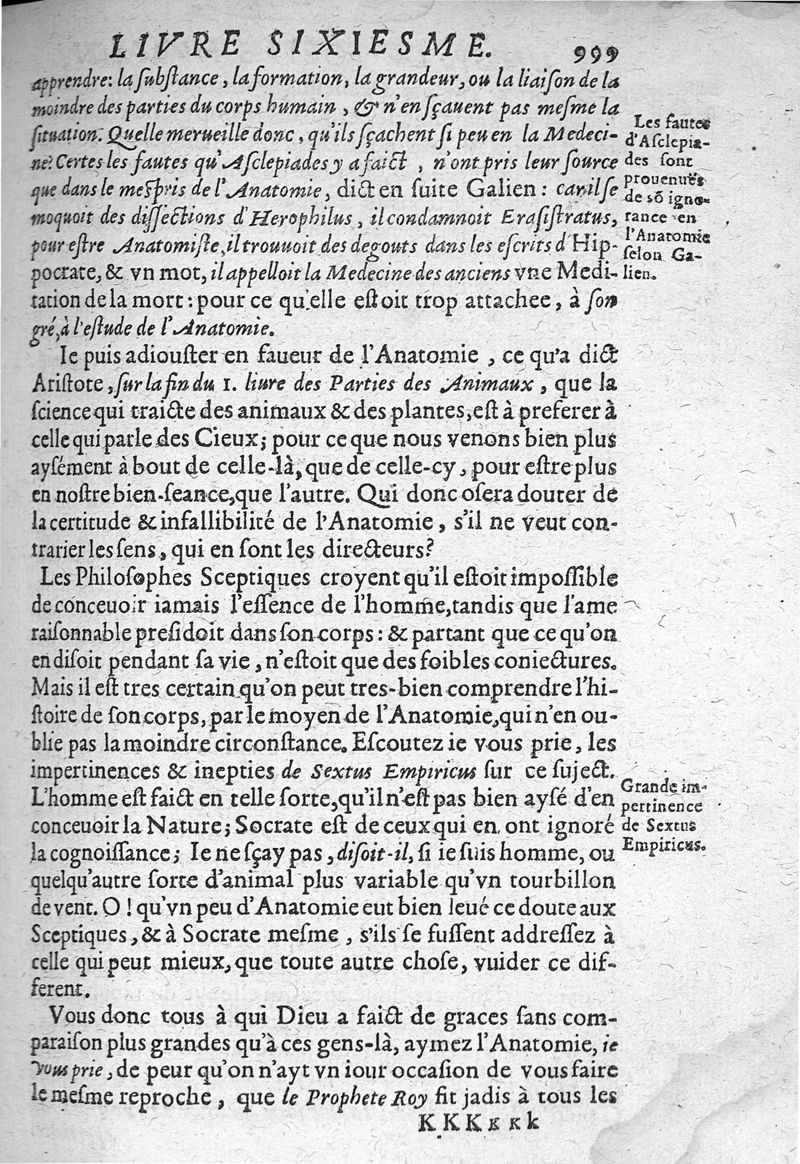 LIVRE SIXIESME. 999
apprendre: la ſubſtance, la formation, la grandeur, ou la liaiſon de la
moindre des parties du corps humain, & n'en ſçauent pas meſme la
ſituation. Quelle merueille donc, qu'ils ſçachent ſi peu en la Medeci-
ne? Certes les fautes qu'Aſclepiades y a faict, n'ont pris leur ſource
que dans le meſpris de l'Anatomie, dict en ſuite Galien: car il ſe
moquoit des diſſections d'Herophilus, il condamnoit Eraſiſtratus,
pour eſtre Anatomiſte, il trouuoit des degouts dans les eſcrits d'Hip-
pocrate, & vn mot, il appelloit la Medecine des anciens vne Medi-
tation de la mort: pour ce qu'elle eſtoit trop attachee, à ſon
gré, à l'eſtude de l'Anatomie.
Les fautes
d'Aſclepia-
des ſont
prouenuës
de sō igno-
rance en
l'Anatomie
ſelon Ga-
lien.
Ie puis adiouſter en faueur de l'Anatomie, ce qu'a dict
Ariſtote, ſur la fin du 1. liure des Parties des Animaux, que la
ſcience qui traicte des animaux & des plantes, eſt à preferer à
celle qui parle des Cieux; pour ce que nous venons bien plus
ayſément à bout de celle-là, que de celle-cy, pour eſtre plus
en noſtre bien-ſeance, que l'autre. Qui donc oſera douter de
la certitude & infallibilité de l'Anatomie, s'il ne veut con-
trarier les ſens, qui en ſont les directeurs?
Les Philoſophes Sceptiques croyent qu'il eſtoit impoſſible
de conceuoir iamais l'eſſence de l'homme, tandis que l'ame
raiſonnable preſidoit dans ſon corps: & partant que ce qu'on
en diſoit pendant ſa vie, n'eſtoit que des foibles coniectures.
Mais il eſt tres certain qu'on peut tres-bien comprendre l'hi-
ſtoire de ſon corps, par le moyen de l'Anatomie, qui n'en ou-
blie pas la moindre circonſtance. Eſcoutez ie vous prie, les
impertinences & inepties de Sextus Empiricus ſur ce ſuject.
L'homme eſt faict en telle ſorte, qu'il n'eſt pas bien ayſé d'en
conceuoir la Nature; Socrate eſt de ceux qui en ont ignoré
la cognoiſſance; Ie ne ſçay pas, diſoit-il, ſi ie ſuis homme, ou
quelqu'autre ſorte d'animal plus variable qu'vn tourbillon
de vent. O! qu'vn peu d'Anatomie eut bien leué ce doute aux
Sceptiques, & à Socrate meſme, s'ils ſe fuſſent addreſſez à
celle qui peut mieux, que toute autre choſe, vuider ce dif-
ferent.
Grande im-
pertinence
de Sextus
Empiricus.
Vous donc tous à qui Dieu a faict de graces ſans com-
paraiſon plus grandes qu'à ces gens-là, aymez l'Anatomie, ie
vous prie, de peur qu'on n'ayt vn iour occaſion de vous faire
le meſme reproche, que le Prophete Roy fit jadis à tous les
KKKĸĸk